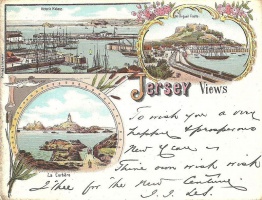 Victoria Harbour
Mt Orgueil Castle
Jersey Views
La Corbière
To wish you a very
happy & prosperous
New Year
wish
I thee for the New Century